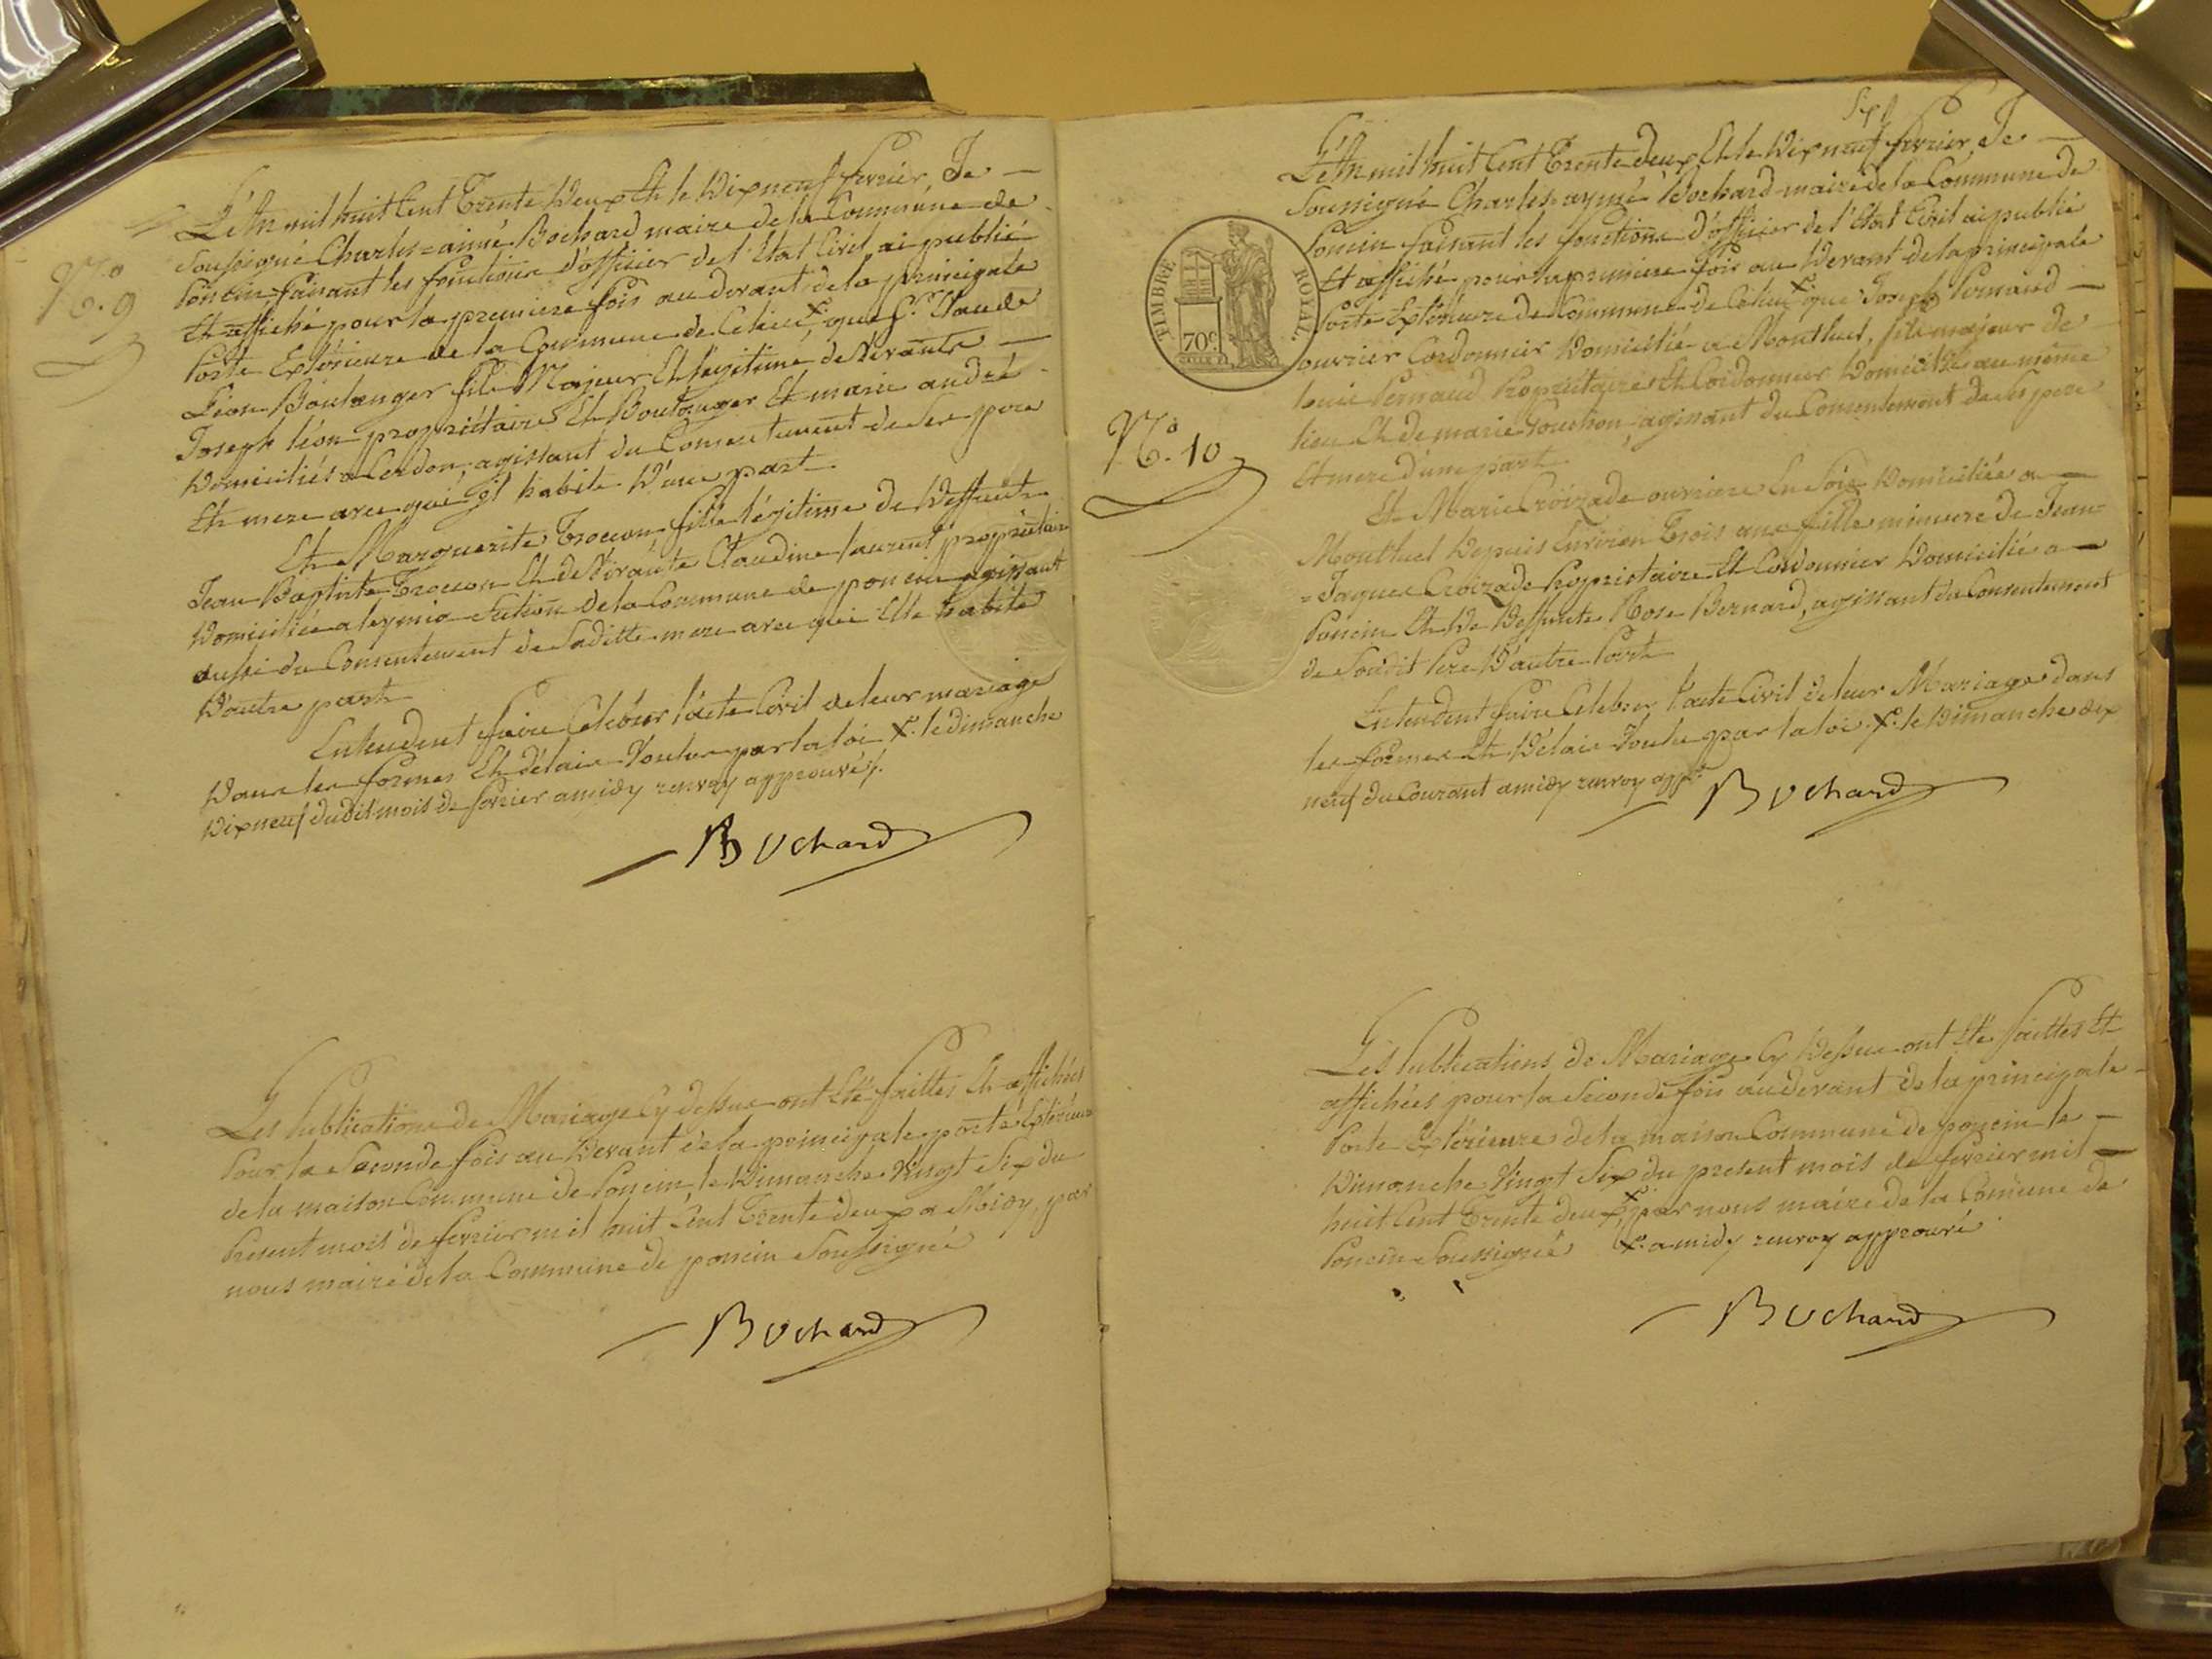 N.º 9
L'An mil huit Cent Trente Deux Et le Dix neuf fevrier, Je
Soussigné Charles=aimé Bochard maire de la Commune de
Poncin faisant les fonctions d'officier de l'Etat Civil ai publié
Et affiché pour la premiere fois au devant de la principale
Porte Extérieure de la Commune de Celieu x, que Sr. Claude
Léon Boulanger fils Majeur Et légitime de Vivants
Joseph léon propriétaire Et Boulanger Et marie andré
Domiciliés a Cerdon, agissant du Consentement de Ses pere
Et mere avec qui Il habite D'une part.
Et Marguerite Trocon fille légitime de Deffunt
Jean Baptiste Trocon Et de Vivante Claudine laurent propriétaire
Domiciliée a leymia Section de la Commune de poncin agissant
aussi du Consentement de Saditte mere avec qui Elle habite
D'autre part
Entendent faire Celébrer l'acte Civil de leur mariage
Dans les formes Et délais Voulus par la loi x. le dimanche
Dix neuf dudit mois de fevrier a midy renvoy approuvé.
Bochard
Les Publications de Mariage Cy dessus ont Eté faittes Et affichées
Pour la Seconde fois au Devant de la principale porte Extérieure
de la maison Commune de Poncin, le Dimanche Vingt Six du
Present mois de fevrier mil huit Cent Trente deux a Midy, par
nous maire de la Commune de poncin Soussigné
Bochard
TIMBRE ROYAL.
70c.
N.º 10
L'An mil huit Cent Trente deux Et le Dix neuf fevrier, Je
Soussigné Charles=aymé Bochard maire de la Commune de
Poncin faisant les fonctions D'officier de l'Etat Civil ai publié
Et affiché pour la premiere fois au Devant de la principale
Porte Extérieure de Commune de Celieu x que Joseph Pernaud
ouvrier Cordonnier Domicilié a Montluel, fils majeur de
louis Pernaud Propriétaire Et Cordonnier Domicilié au même
lieu Et de marie Fouchon, agissant du Consentement de Ses pere
Et mere D'une part
Et Marie Croizade ouvriere En Soie Domiciliée a
Montluel Depuis Environ Trois ans fille mineure de Jean=
=Jaques Croizade Propriétaire Et Cordonnier Domicilié a
Poncin Et De Deffunte Rose Bernard, agissant du Consentement
de Soudit Pere D'autre Part
Entendent faire Celebrer l'acte Civil de leur Mariage dans
les formes Et Délais Voulu par la loi. x. le Dimanche dix
neuf du Courant a midy renvoy appé.
Bochard
Les Publications de Mariage Cy Dessus ont Eté faittes Et
affichées pour la Seconde fois au devant de la principale
Porte Extérieure de la maison Commune de poncin le
Dimanche Vingt Six du present mois de fevrier mil
huit Cent Trente deux x, par nous maire de la Comune de
Poncin Soussigné x. a midy renvoy approuvé
Bochard